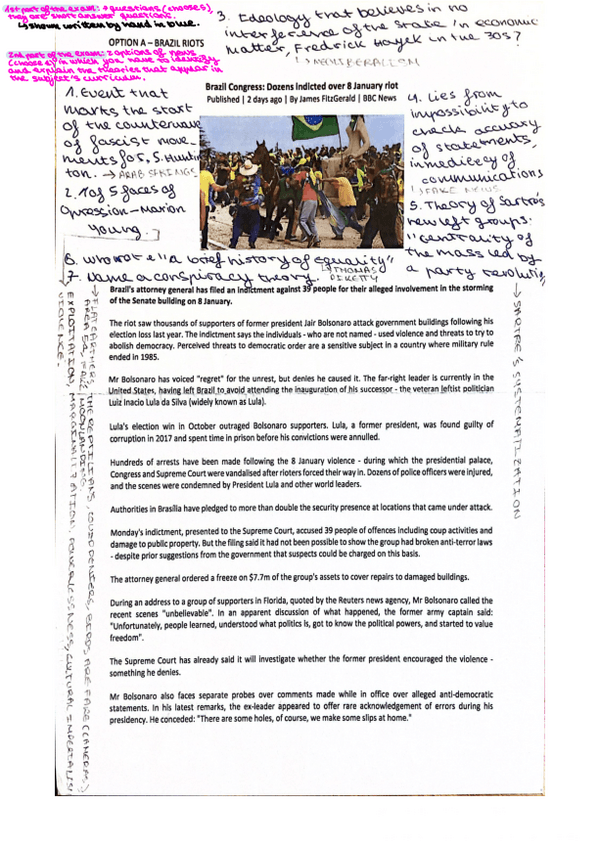 1st part of the exam: 7 questions (choose 5),
they are short answer questions.
↳ shown written by hand in blue.
OPTION A – BRAZIL RIOTS
2nd part of the exam: 2 options of news
(choose 1) in which you have to identify
and explain the theories that appear in
the subject's curriculum.
3. Ideology that believes in no
interference of the state in economic
matter, Fredrick Hayek in the 30s?
↳ NEOLIBERALISM
Brazil Congress: Dozens indicted over 8 January riot
Published | 2 days ago | By James FitzGerald | BBC News
1. Event that
marks the start
of the counterwave
of fascist move-
ments for, S. Hunting
ton. → ARAB SPRINGS
2. 1 of 5 faces of
Opression – Marion
Young.
4. Lies from
impossibility to
check accuracy
of statements,
inmediecy of
communications
↳ FAKE NEWS
5. Theory of Sartre's
new left groups.
"centrality of
the mass led by
a party revolution
6. Who wrote "a brief history of equality"
↳ THOMAS
PIKETTY
7. Name a conspiracy theory.
Brazil's attorney general has filed an indictment against 39 people for their alleged involvement in the storming
of the Senate building on 8 January.
The riot saw thousands of supporters of former president Jair Bolsonaro attack government buildings following his
election loss last year. The indictment says the individuals - who are not named - used violence and threats to try to
abolish democracy. Perceived threats to democratic order are a sensitive subject in a country where military rule
ended in 1985.
Mr Bolsonaro has voiced "regret" for the unrest, but denies he caused it. The far-right leader is currently in the
United States, having left Brazil to avoid attending the inauguration of his successor - the veteran leftist politician
Luiz Inacio Lula da Silva (widely known as Lula).
Lula's election win in October outraged Bolsonaro supporters. Lula, a former president, was found guilty of
corruption in 2017 and spent time in prison before his convictions were annulled.
Hundreds of arrests have been made following the 8 January violence - during which the presidential palace,
Congress and Supreme Court were vandalised after rioters forced their way in. Dozens of police officers were injured,
and the scenes were condemned by President Lula and other world leaders.
Authorities in Brasília have pledged to more than double the security presence at locations that came under attack.
Monday's indictment, presented to the Supreme Court, accused 39 people of offences including coup activities and
damage to public property. But the filing said it had not been possible to show the group had broken anti-terror laws
- despite prior suggestions from the government that suspects could be charged on this basis.
The attorney general ordered a freeze on $7.7m of the group's assets to cover repairs to damaged buildings.
During an address to a group of supporters in Florida, quoted by the Reuters news agency, Mr Bolsonaro called the
recent scenes "unbelievable". In an apparent discussion of what happened, the former army captain said:
"Unfortunately, people learned, understood what politics is, got to know the political powers, and started to value
freedom".
The Supreme Court has already said it will investigate whether the former president encouraged the violence -
something he denies.
Mr Bolsonaro also faces separate probes over comments made while in office over alleged anti-democratic
statements. In his latest remarks, the ex-leader appeared to offer rare acknowledgement of errors during his
presidency. He conceded: "There are some holes, of course, we make some slips at home."
→ FLAT EARTHERS, THE REPTILIANS, COVID DENIERS, BIRDS ARE FAKE (CAMERAS)
AREA 51, FAKE MOON LANDING.
→ EXPLOITATION, MARGINALIZATION, POWERLESSNESS, CULTURAL IMPERIALISM
VIOLENCE.
→ SARTRE'S SYSTEMATIZATION